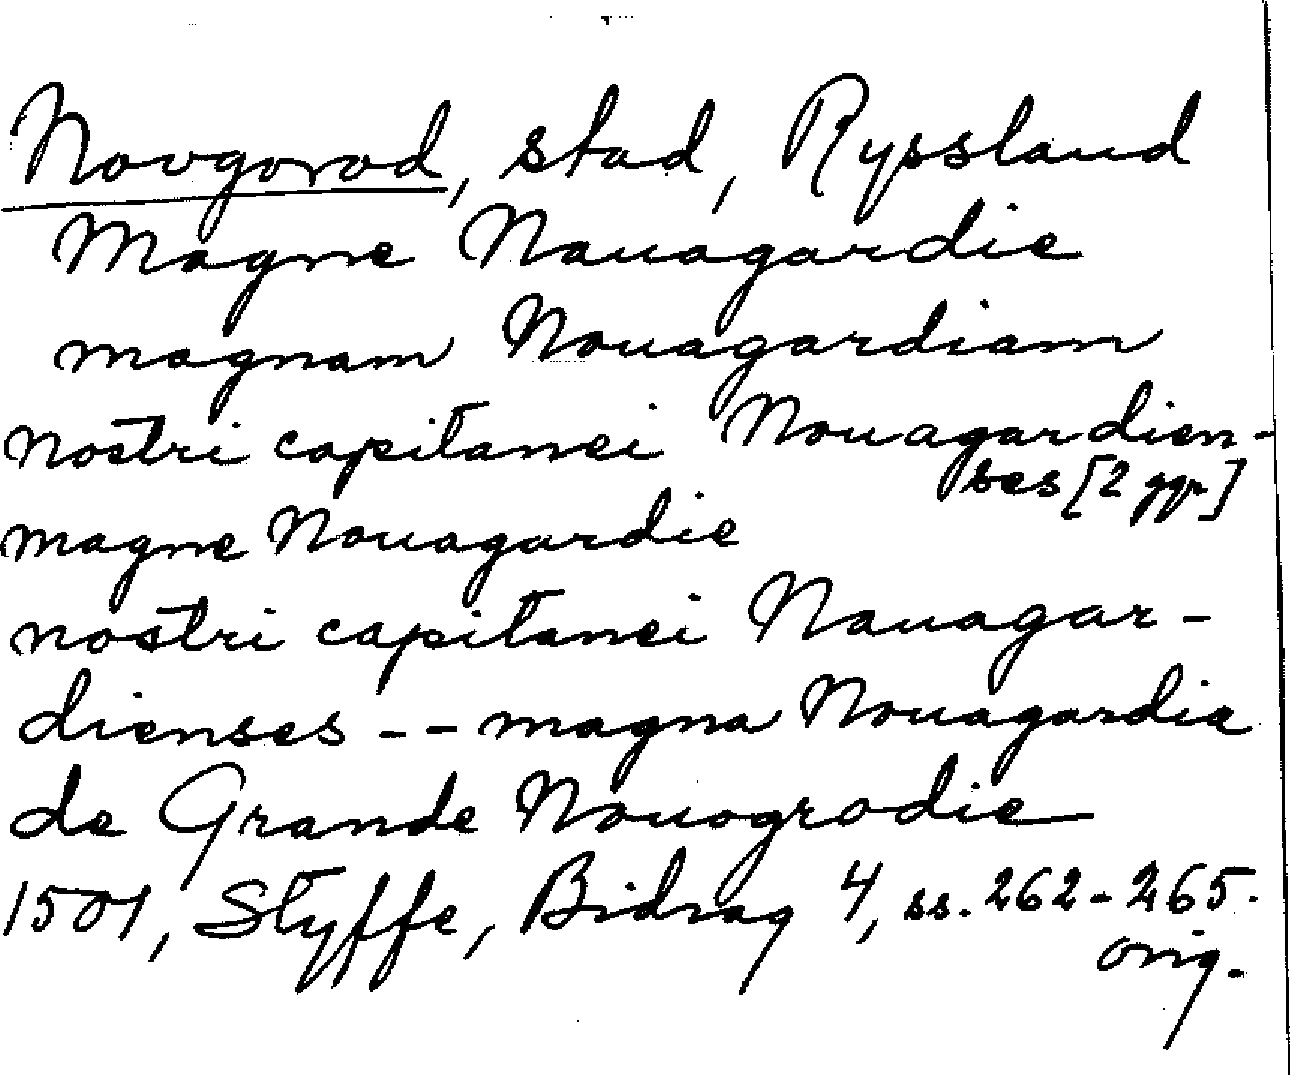 Novgorod, stad, Ryssland
Magne Nauagardie
magnam Nouagardiam
nostri capitanei Nouagardien-
ses [2 ggr]
magne Nouagardie
nostri capitanei Nauagar-
dienses -- magna Nouagardie
de Grande Nouogrodie
1501, Styffe, Bidrag 4, ss. 262-265.
orig.